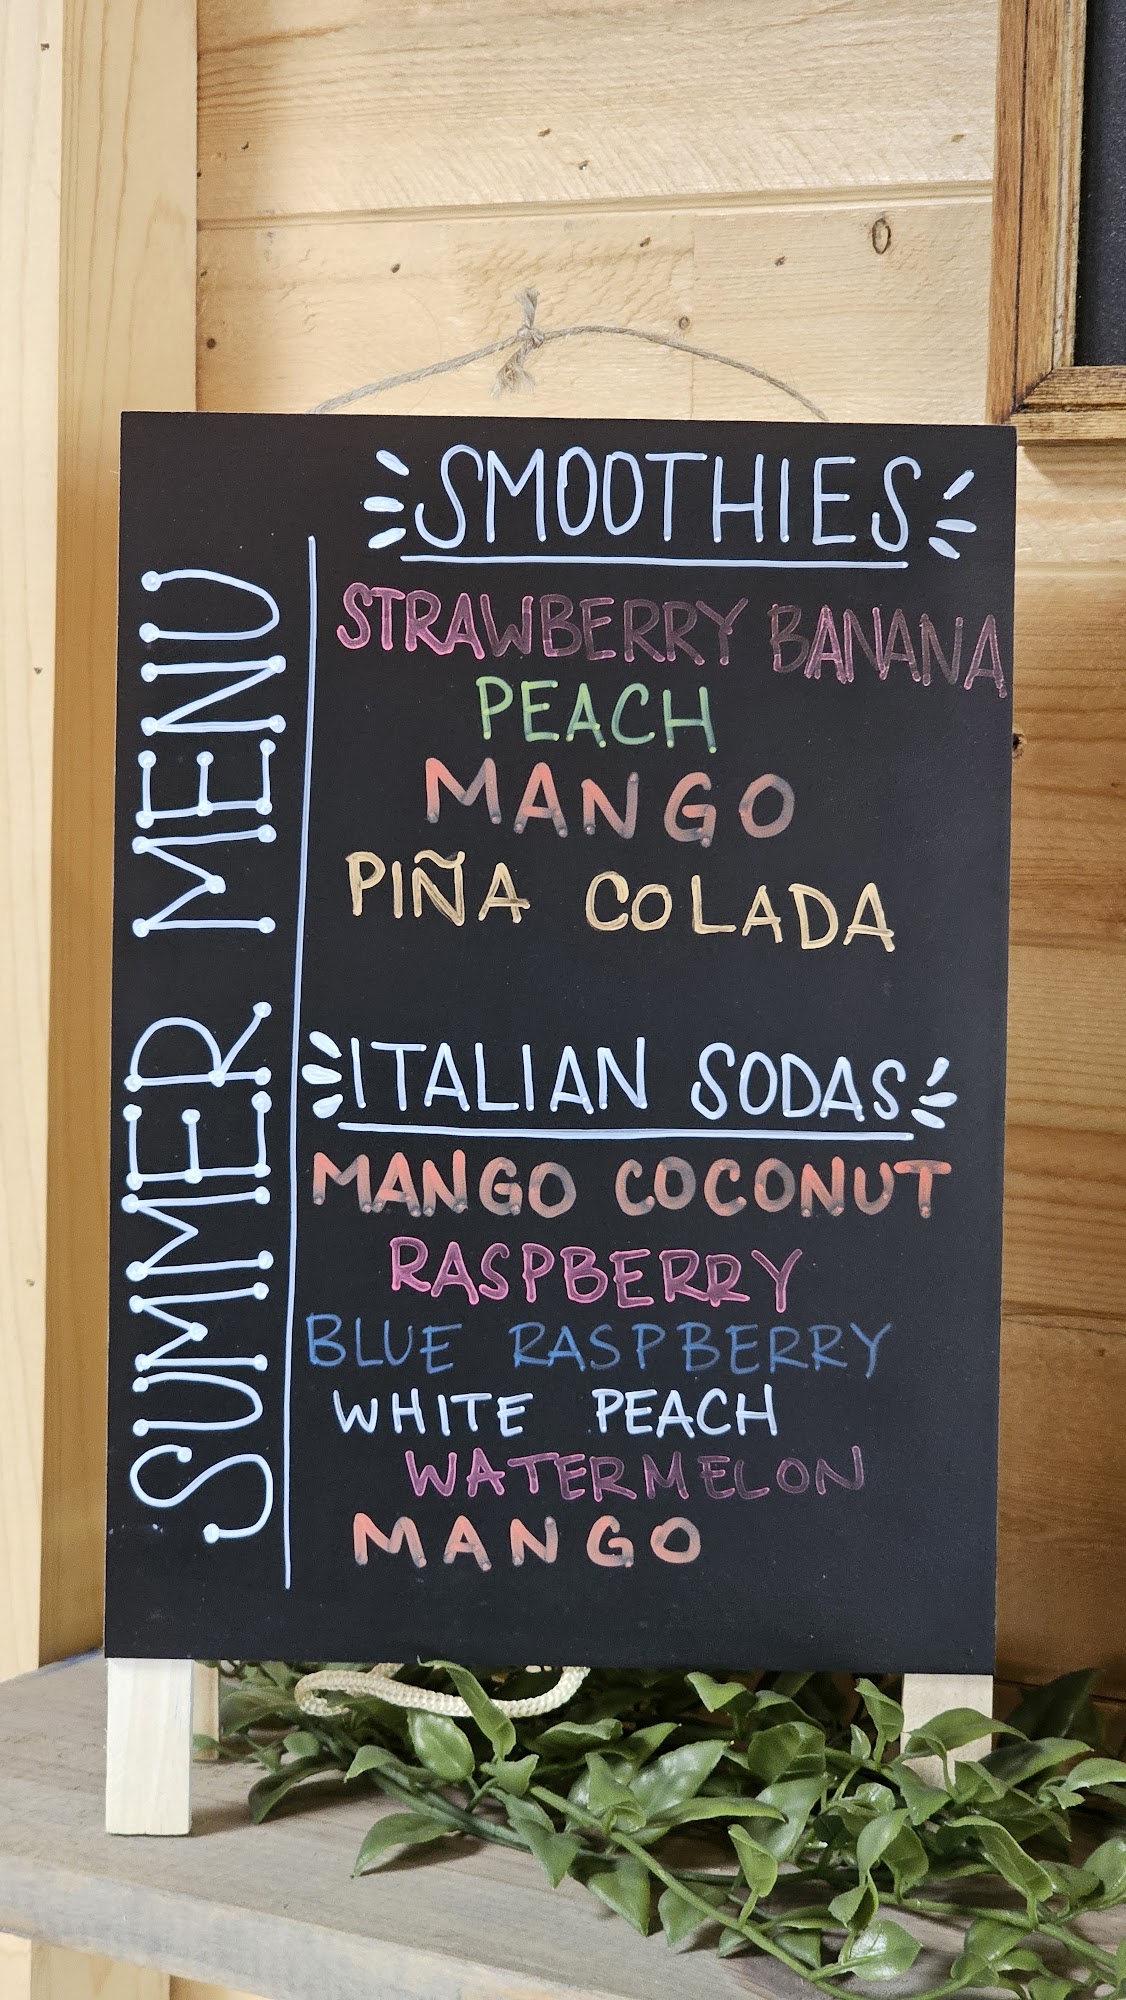 SUMMER MENU
SMOOTHIES
STRAWBERRY BANANA
PEACH
MANGO
PIÑA COLADA
ITALIAN SODAS
MANGO COCONUT
RASPBERRY
BLUE RASPBERRY
WHITE PEACH
WATERMELON
MANGO